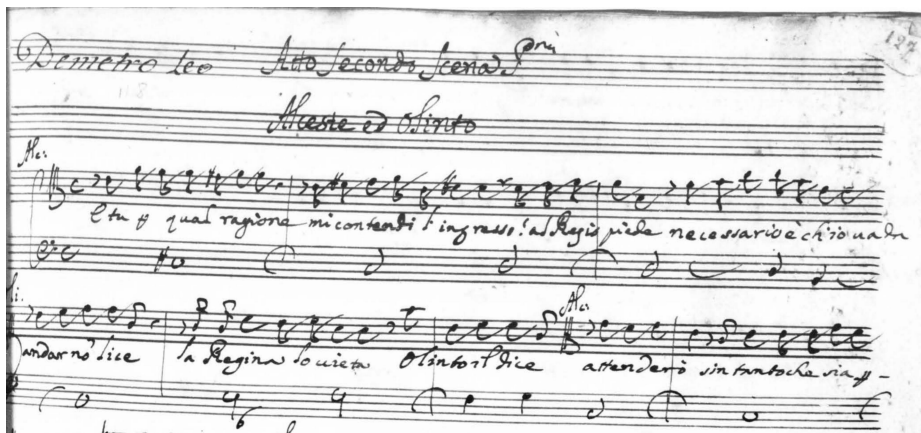 Demetro Leo Atto Secondo Scena P.ma 127
118
Alceste ed Olinto
Alc:
E tu qual ragione mi contendi l'ingresso! al Regio piede necessario è ch'io vada
Alc:
andar nõ lice la Regina lo vieta Olinto il dice attenderò sin tanto che sia
6